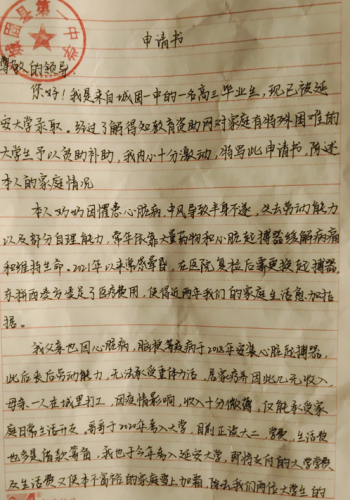 城固县第一中学
申请书
尊敬的领导:
你好!我是来自城固一中的一名高三毕业生,现已被延
安大学录取。经过了解得知教育资助网对家庭有特殊困难的
大学生予以资助补助,我内心十分激动,特写此申请书,陈述
本人的家庭情况
本人奶奶因罹患心脏病,中风导致半身不遂,失去劳动能力
以及部分自理能力,常年依靠大量药物和心脏起搏器缓解病痛
和维持生命。2021年以来常感晕昏,在医院复检后需更换起搏器,
东拼西凑方凑足了医疗费用,使得近两年我们的家庭生活愈加拮
据。
我父亲也因心脏病,脑梗等疾病于2018年安装心脏起搏器,
此后丧后劳动能力,无法承受重体力活,居家疗养因此几无收入,
母亲一人在城里打工,因疫情影响,收入十分微薄,仅能承受家
庭日常生活开支,哥哥于2020年考入大学,目前正读大二,学费,生活费
也多是借款筹备,我也于今年考入延安大学,即将支付的大学学费
及生活费又使本不富裕的家庭雪上加霜,除去我们两位大学生的